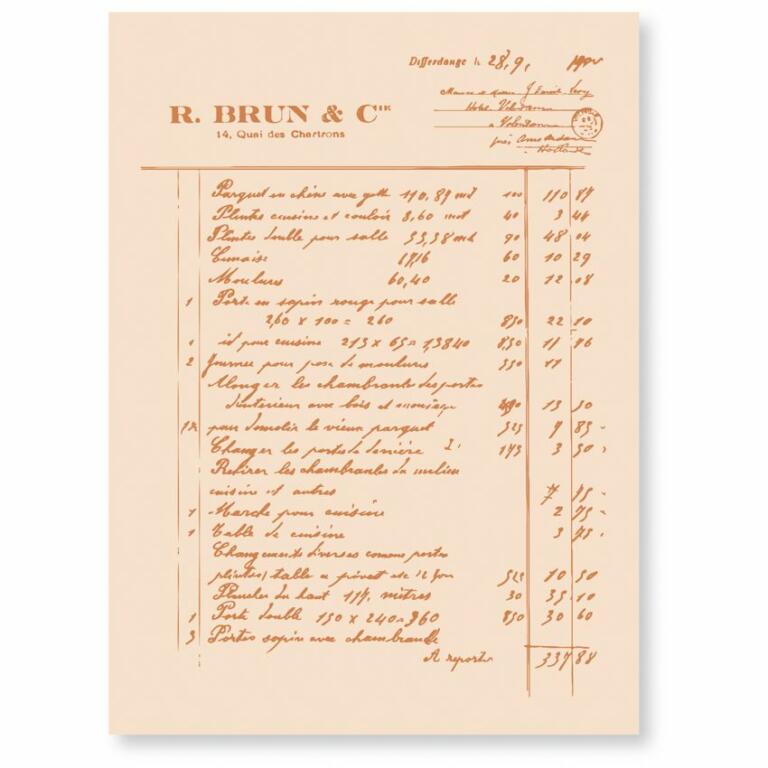 Differdange le 28, 9,
R. BRUN & Cie
14, Quai des Chartrons
Hotel
à
près Amsterdam
Hollande
Parquet en chêne avec 110,87 mt 100 110 87
Plintes cuisine et couloir 8,60 mt 40 3 44
Plintes double pour salle 53,38 mt 90 48 04
17,16 60 10 29
Moulures 60,40 20 12 08
1 Porte en sapin rouge pour salle
2,60 x 100 = 260 850 22 10
1 id pour cuisine 213 x 65 = 1,3840 850 11 76
2 Journee pour pose de moulures 550 11
Alonger les chambrantes des portes
d'interieur avec bois et 13 50
pour demolir le vieux parquet 525 7 85
Changer les portes de derriere 2 175 3 50
Retirer les chambrantes du milieu
cuisine et autres 7 75
1 Marche pour cuisine 2 75
1 Table de cuisine 3 75
Changements diverses comme portes
plintes, table a etc 2 jour 525 10 50
Plancher du haut 117, mètres 30 35 10
1 Porte double 150 x 240 = 360 850 30 60
3 Portes sapin avec chambrante
A reporter 337 88